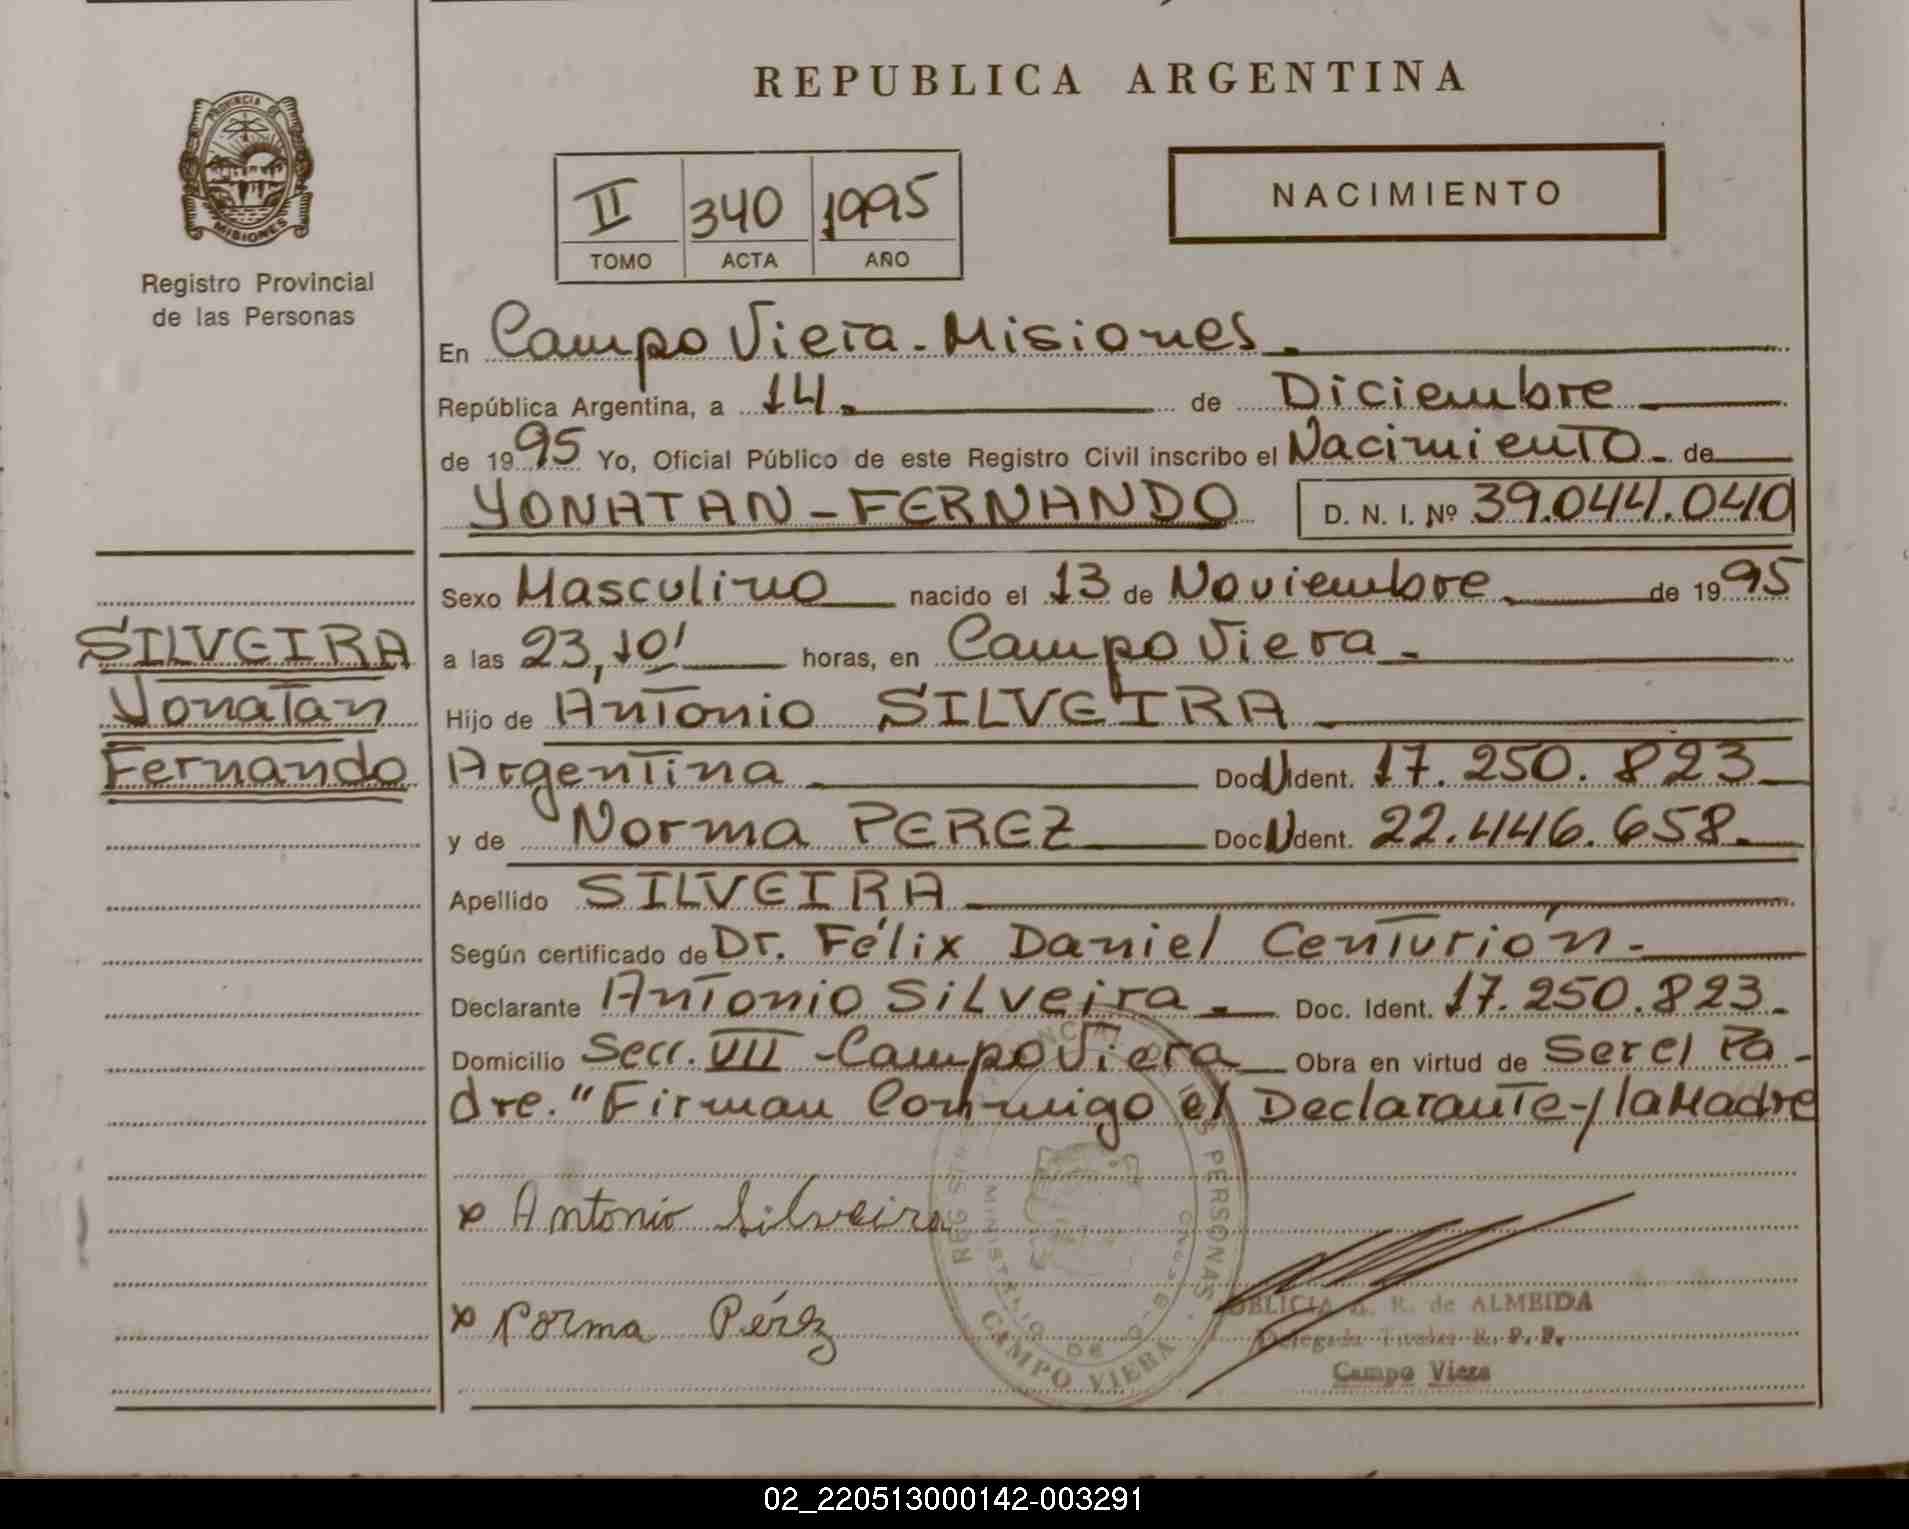 REPUBLICA ARGENTINA
PROVINCIA DE
MISIONES
Registro Provincial
de las Personas
II 340 1995
TOMO ACTA AÑO
NACIMIENTO
En Campo Viera - Misiones.
República Argentina, a 14. de Diciembre
de 1995 Yo, Oficial Público de este Registro Civil inscribo el Nacimiento - de
YONATAN - FERNANDO D. N. I. Nº 39.044.040
Sexo Masculino nacido el 13 de Noviembre de 1995
SILVEIRA
a las 23,10' horas, en Campo Viera -
Yonatan
Hijo de Antonio SILVEIRA
Fernando
Argentina Doc N Ident. 17.250.823
y de Norma PEREZ Doc N dent. 22.446.658.
Apellido SILVEIRA
Según certificado de Dr. Félix Daniel Centurión -
Declarante Antonio Silveira - Doc. Ident. 17.250.823.
Domicilio Secc. VII - Campo Viera Obra en virtud de Ser el Pa-
dre. "Firman Conmigo el Declarante y la Madre
x Antonio Silveira
x Norma Pérez
REGIS DE LAS PERSONAS
MINISTERIO DE
CAMPO VIERA
R. de ALMEIDA
Delegada Titular R. P. P.
Campo Viera
02_220513000142-003291